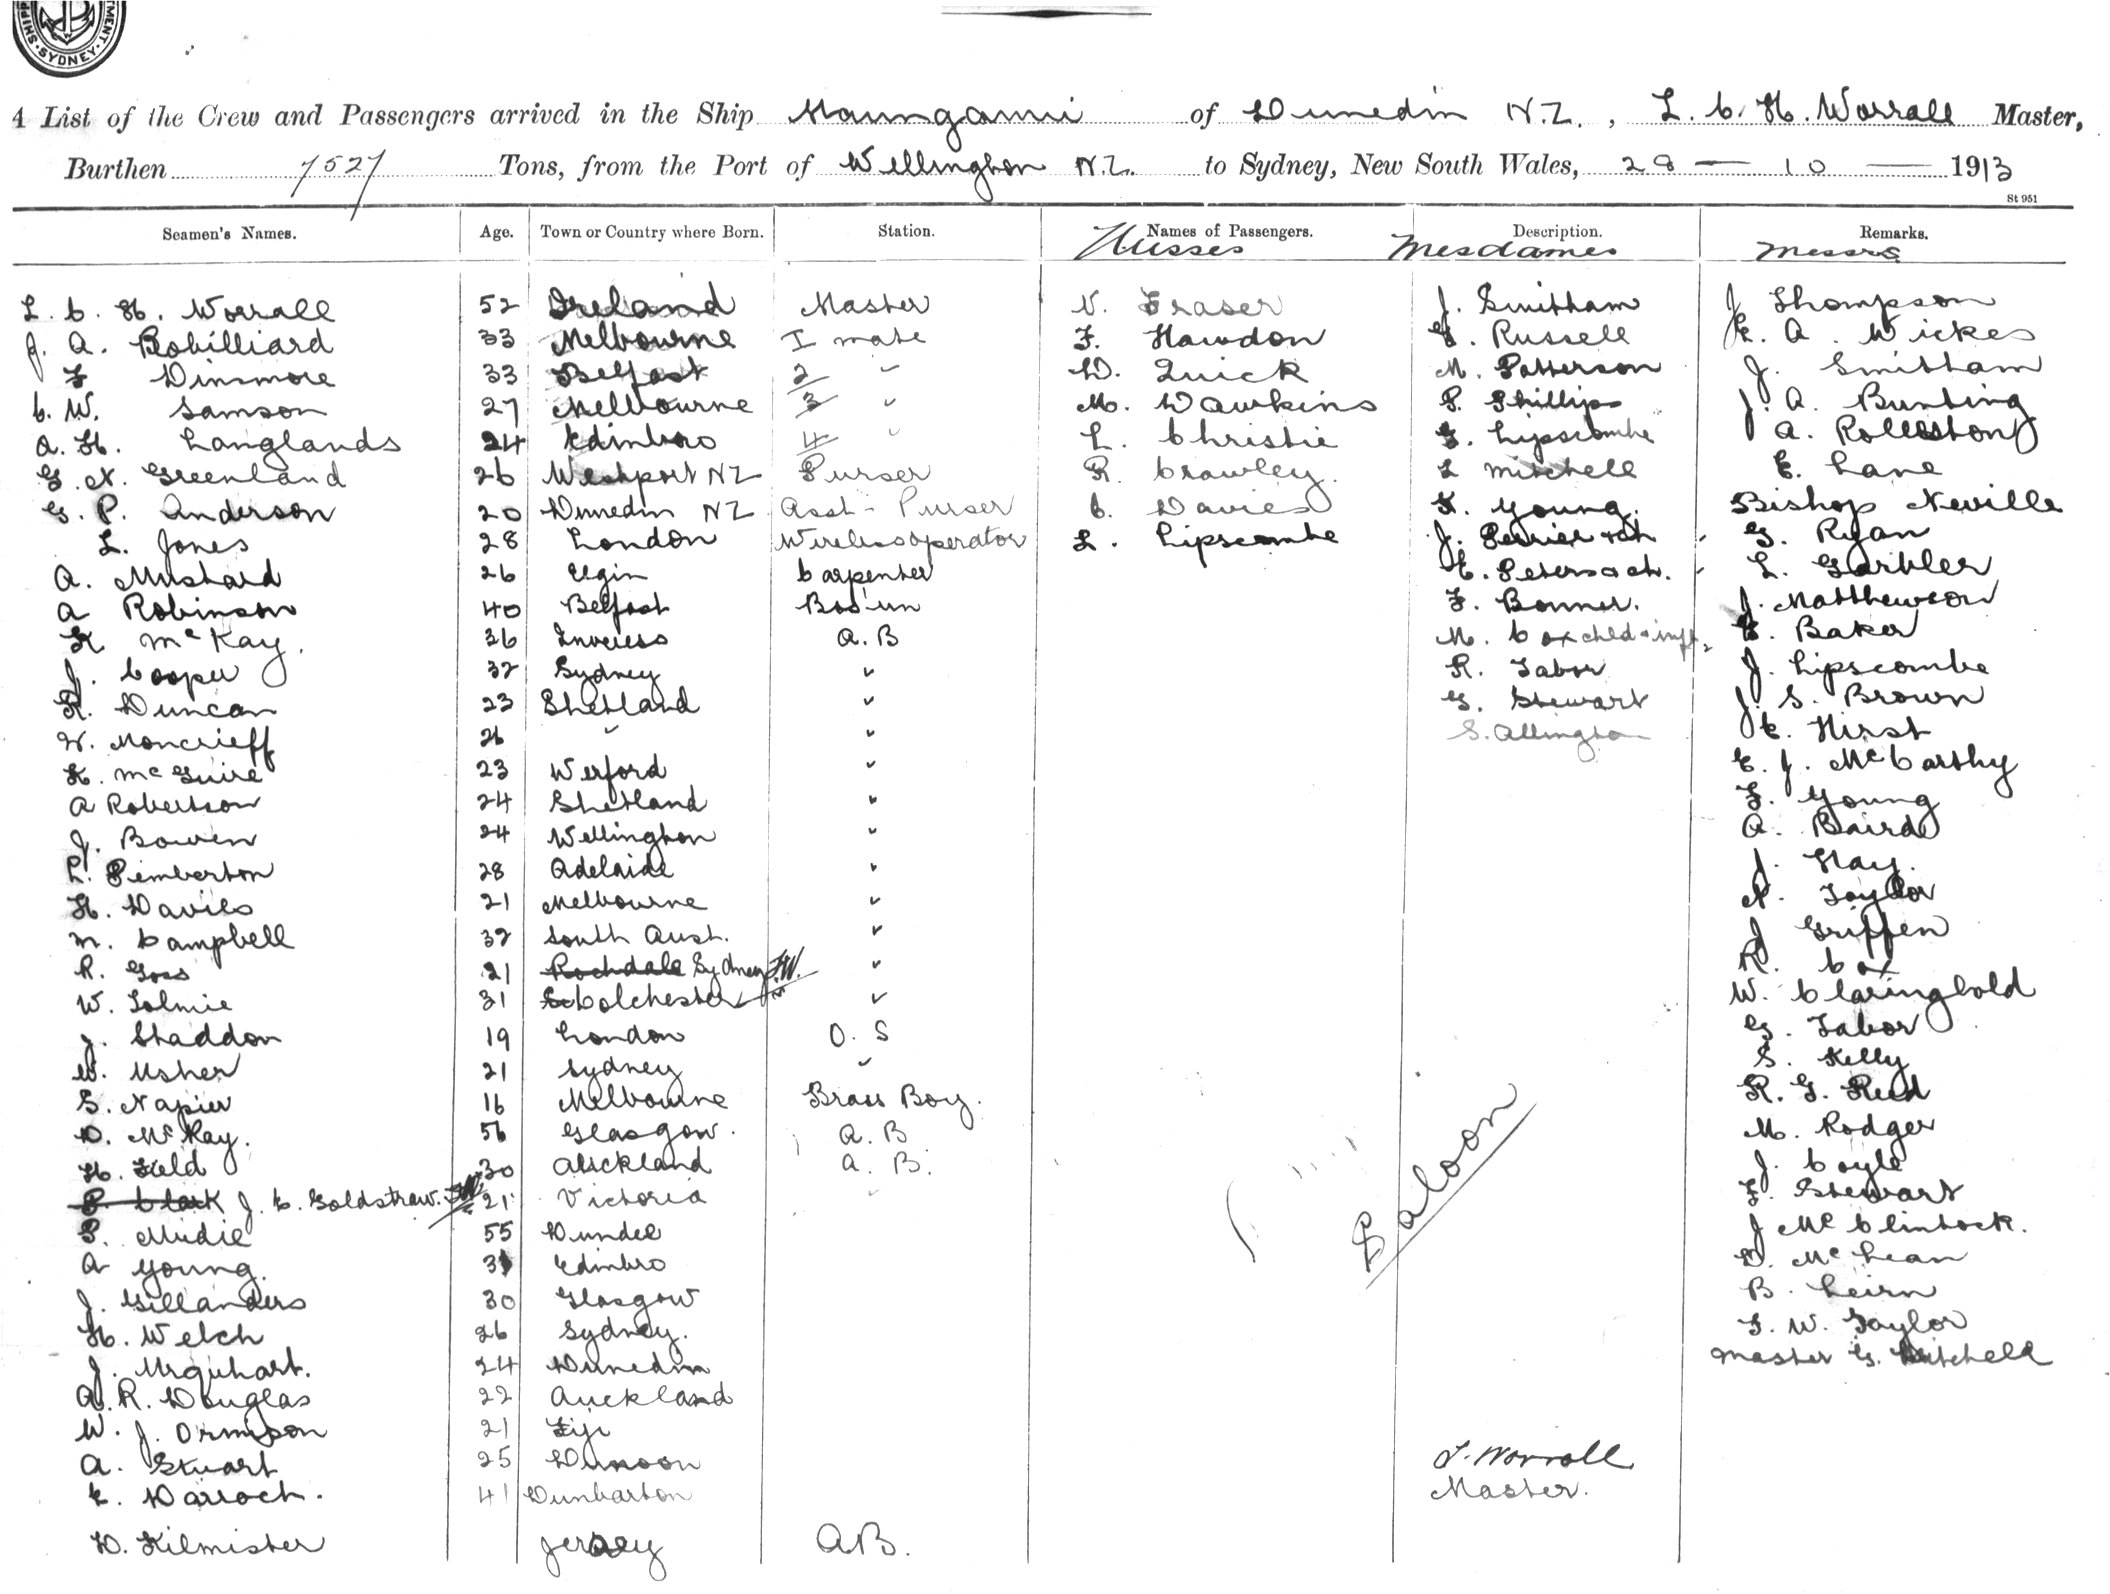 SHIPP
MENT. SYDNEY.
4 List of the Crew and Passengers arrived in the Ship Maunganui of Dunedin N.Z., L. C. H. Worrall Master,
Burthen 7527 Tons, from the Port of Wellington N.Z. to Sydney, New South Wales, 28 — 10 — 1913
St 951
Seamen's Names. Age. Town or Country where Born. Station. Names of Passengers. Description. Remarks.
Misses Mesdames Messrs
L. C. H. Worrall 52 Ireland Master N. Fraser J. Smitham J Thompson
J. A. Robilliard 33 Melbourne I mate F. Hawdon Russell E. A. Wickes
F Dinsmore 33 Belfast 2 " D. Quick M. Patterson J. Smitham
C. W. Samson 27 Melbourne 3 " M. Dawkins P. Phillips J. A. Bunting
A. H. Langlands 24 Edinbro 4 " L. Christie Lipscombe A. Rolleston
G. N. Greenland 26 Westport NZ Purser R. Crawley. L Mitchell E. Lane
G. P. Anderson 20 Dunedin NZ Asst - Purser C. Davies K. Young. Bishop Neville
L. Jones 28 London Wireless operator L. Lipscombe J. & ch G. Ryan
A. Mustard 26 Elgin Carpenter E. Peters & ch. L.
A Robinson 40 Belfast Bos'un F. Bonner. J. Matthewson
K McKay. 36 A. B M. Cox chld & inft Baker
J. Cooper 32 Sydney " R. Tabor J. Lipscombe
R. Duncan 23 Shetland " G. Stewart J. S. Brown
W. Moncrieff 26 " " S. Allington E. Hirst
H. McGuire 23 Wexford " E. J. McCarthy
A Robertson 24 Shetland " F. Young
J. Bowen 24 Wellington " A. Baird
L. Pemberton 28 Adelaide " J. Hay.
H. Davies 21 Melbourne " N. Taylor
M. Campbell 32 South Aust. " J Griffen
R. Goss 21 Rochdale Sydney F.W. " R. Cox
W. Tolmie 31 Colchester " W. Claringbold
J. Shaddon 19 London O. S G. Tabor
W. Usher 21 Sydney " S. Kelly
S. Napier 16 Melbourne Brass Boy. R. G. Reid
D. McKay. 56 Glasgow. A. B M. Rodger
H. Field 30 Auckland A. B. J. Coyle
P. Clark J. C. Goldstraw. 21 Victoria " F. Stewart
P. Mudie 55 Dundee J McClintock.
A Young. 31 Edinbro D. McLean
J. Gillanders 30 Glasgow B.
H. Welch 26 Sydney. F. W. Taylor
J. Urquhart. 24 Dunedin Master G. Mitchell
A. R. Douglas 22 Auckland
W. J. Ormison 21 Fiji
A. Stuart 25 Dunoon
E. Darroch. 41 Dunbarton
D. Kilmister Jersey A.B.
Saloon
L. Worrall
Master.